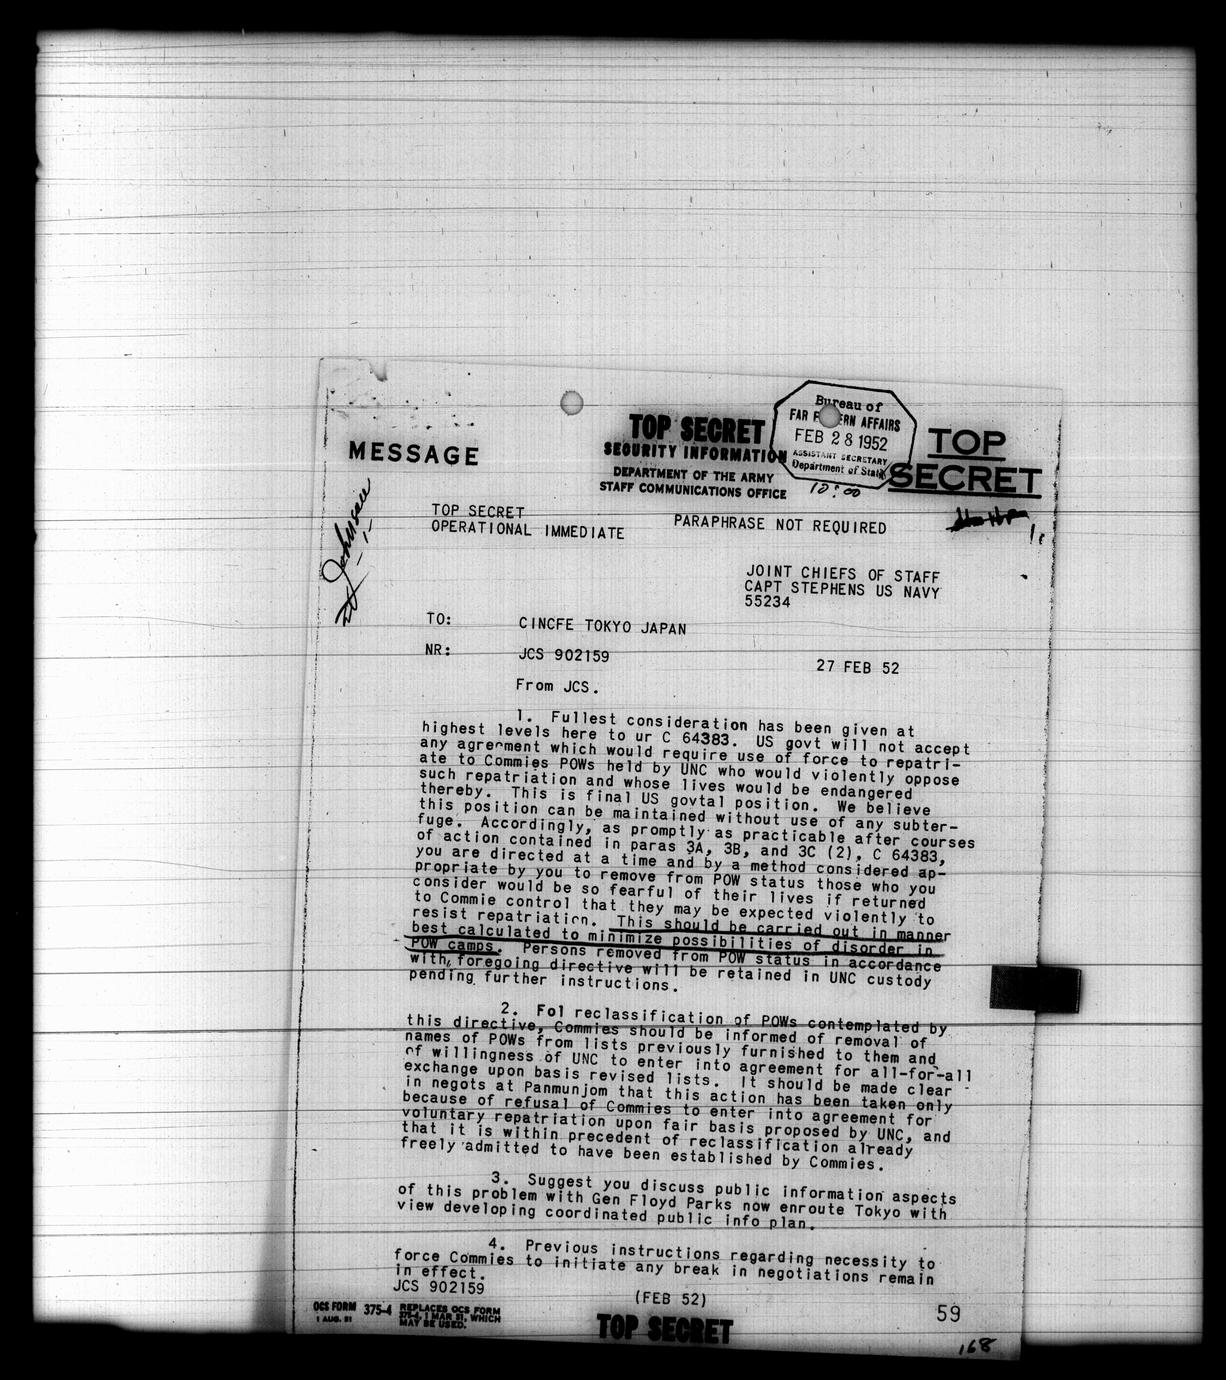 MESSAGE
TOP SECRET
SECURITY INFORMATION
DEPARTMENT OF THE ARMY
STAFF COMMUNICATIONS OFFICE
Bureau of
FAR EASTERN AFFAIRS
FEB 28 1952
ASSISTANT SECRETARY
Department of State
TOP
SECRET
10:00
Johnson
TOP SECRET
OPERATIONAL IMMEDIATE
PARAPHRASE NOT REQUIRED
JOINT CHIEFS OF STAFF
CAPT STEPHENS US NAVY
55234
TO: CINCFE TOKYO JAPAN
NR: JCS 902159
27 FEB 52
From JCS.
1. Fullest consideration has been given at
highest levels here to ur C 64383. US govt will not accept
any agreement which would require use of force to repatri-
ate to Commies POWs held by UNC who would violently oppose
such repatriation and whose lives would be endangered
thereby. This is final US govtal position. We believe
this position can be maintained without use of any subter-
fuge. Accordingly, as promptly as practicable after courses
of action contained in paras 3A, 3B, and 3C (2), C 64383,
you are directed at a time and by a method considered ap-
propriate by you to remove from POW status those who you
consider would be so fearful of their lives if returned
to Commie control that they may be expected violently to
resist repatriation. This should be carried out in manner
best calculated to minimize possibilities of disorder in
POW camps. Persons removed from POW status in accordance
with foregoing directive will be retained in UNC custody
pending further instructions.
2. Fol reclassification of POWs contemplated by
this directive, Commies should be informed of removal of
names of POWs from lists previously furnished to them and
of willingness of UNC to enter into agreement for all-for-all
exchange upon basis revised lists. It should be made clear
in negots at Panmunjom that this action has been taken only
because of refusal of Commies to enter into agreement for
voluntary repatriation upon fair basis proposed by UNC, and
that it is within precedent of reclassification already
freely admitted to have been established by Commies.
3. Suggest you discuss public information aspects
of this problem with Gen Floyd Parks now enroute Tokyo with
view developing coordinated public info plan.
4. Previous instructions regarding necessity to
force Commies to initiate any break in negotiations remain
in effect.
JCS 902159
(FEB 52)
OCS FORM 375-4
1 AUG. 51
REPLACES OCS FORM
375-4, 1 MAR 51, WHICH
MAY BE USED.
TOP SECRET
59
168